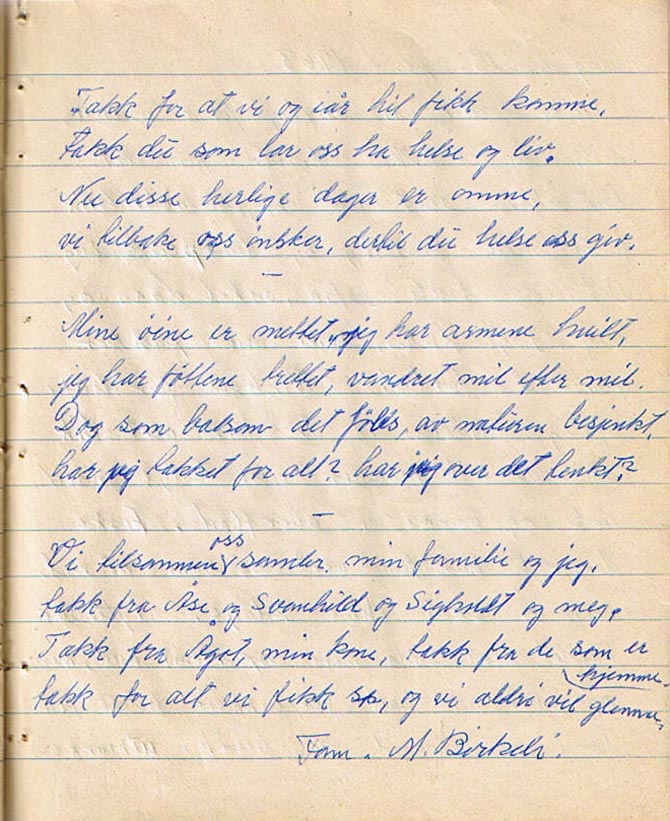 Takk for at vi og iår hit fikk komme,
Takk du som lar oss ha helse og liv.
Nu disse herlige dager er omme,
vi tilbake oss ønsker, dertil du helse oss giv.
Mine öine er mettet, jeg har armene hvilt,
jeg har føttene trettet, vandret mil efter mil.
Dog som balsom det föles, av naturen besjenkt,
har jeg takket for alt? har jeg over det tenkt?
Vi tilsammen oss samler min familie og jeg.
takk fra Åse og Svanhild og Sigholdt og meg.
Takk fra Ågot, min kone, takk fra de som er hjemme.
takk for alt vi fikk se, og vi aldri vil glemme.
Fam. M. Birkeli.